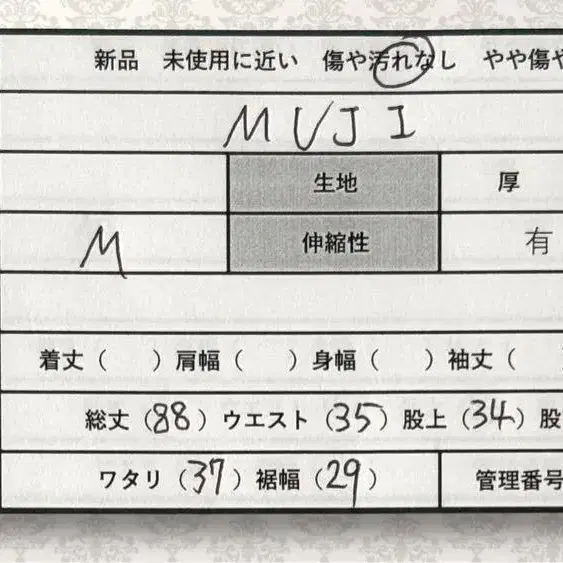 新品 未使用に近い 傷や汚れなし やや傷や
MUJI
生地 厚
M 伸縮性 有
着丈（ ）肩幅（ ）身幅（ ）袖丈（
総丈（88）ウエスト（35）股上（34）股
ワタリ（37）裾幅（29） 管理番号